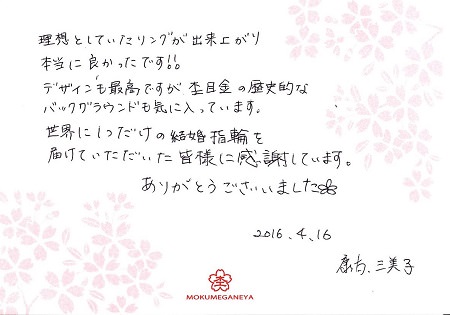 理想としていたリングが出来上がり
本当に良かったです!!
デザインも最高ですが 杢目金の歴史的な
バックグラウンドも気に入っています。
世界に1つだけの結婚指輪を
届けていただいた皆様に感謝しています。
ありがとうございました
2016.4.16
三美子
杢
MOKUMEGANEYA